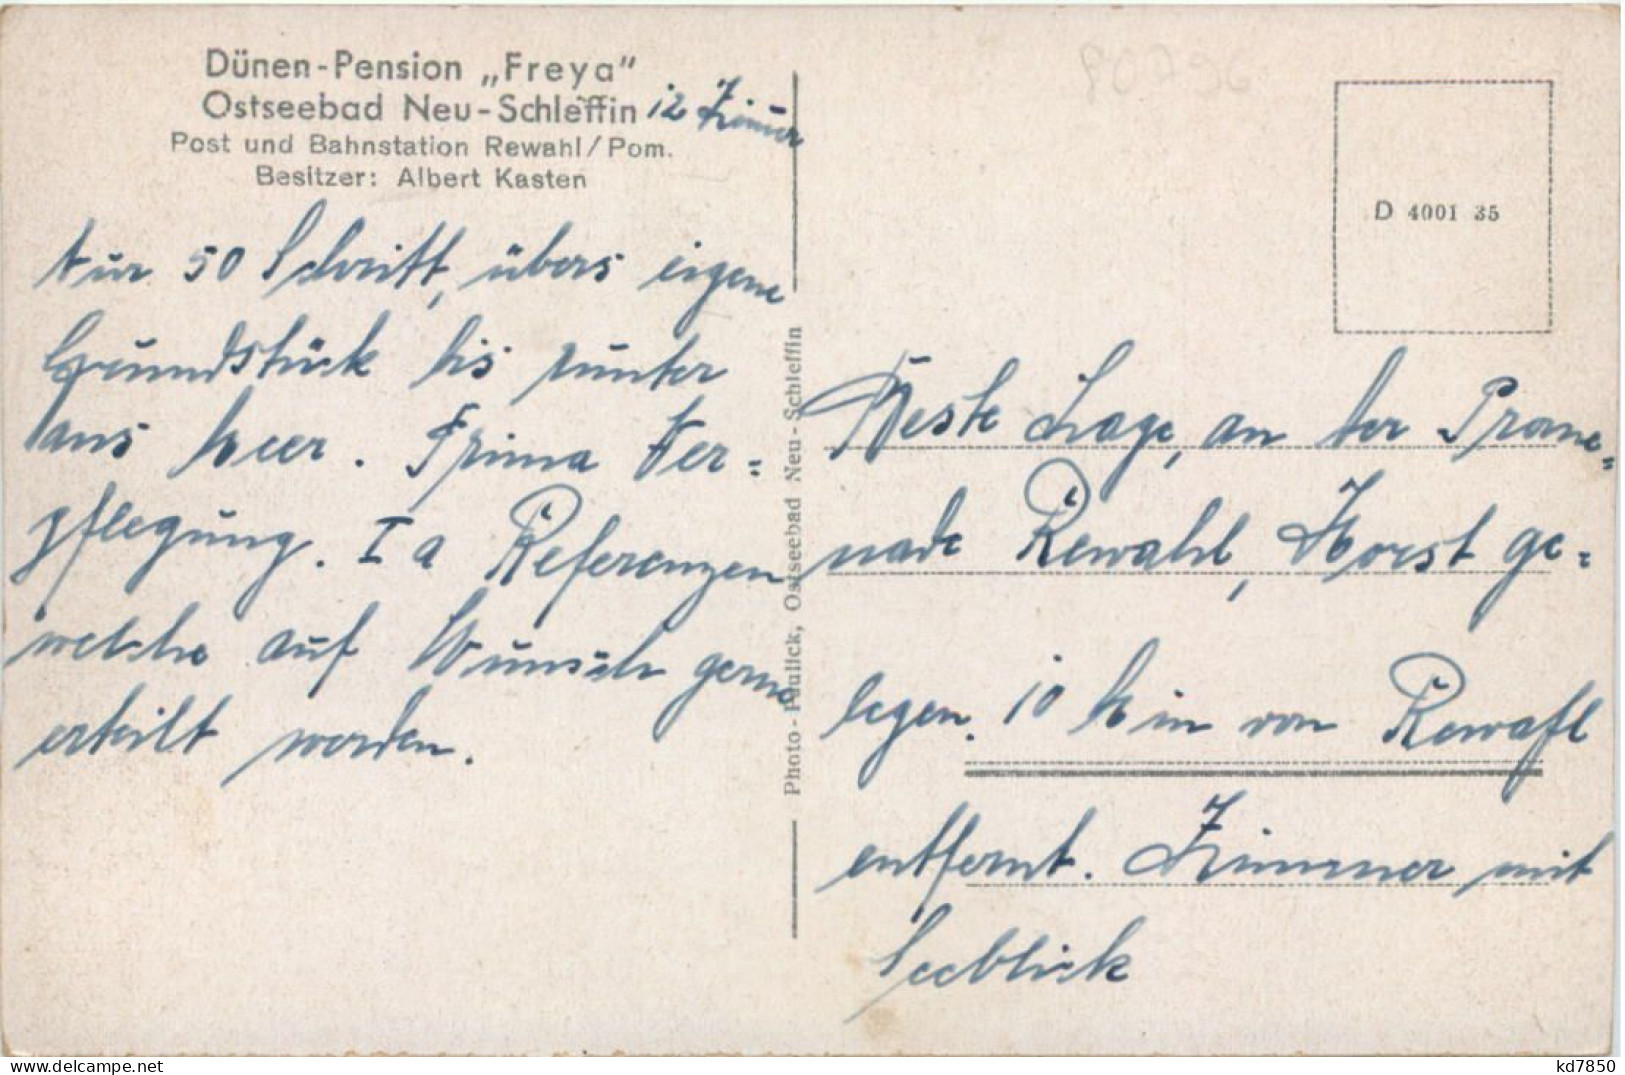 Dünen-Pension „Freya"
Ostseebad Neu-Schleffin 12 Zimmer
Post und Bahnstation Rewahl/Pom.
Besitzer: Albert Kasten
Nur 50 Schritt, übers eigene
Grundstück bis runter
ans Meer. Prima Ver=
pflegung. Ia Referenzen
welche auf Wunsch gerne
erteilt werden.
Photo-Paulick, Ostseebad Neu-Schleffin
D 4001 35
Beste Lage, an der Prome=
nade Rewahl, Horst ge=
legen. 10 Min von Rewahl
entfernt. Zimmer mit
Seeblick
kd7850